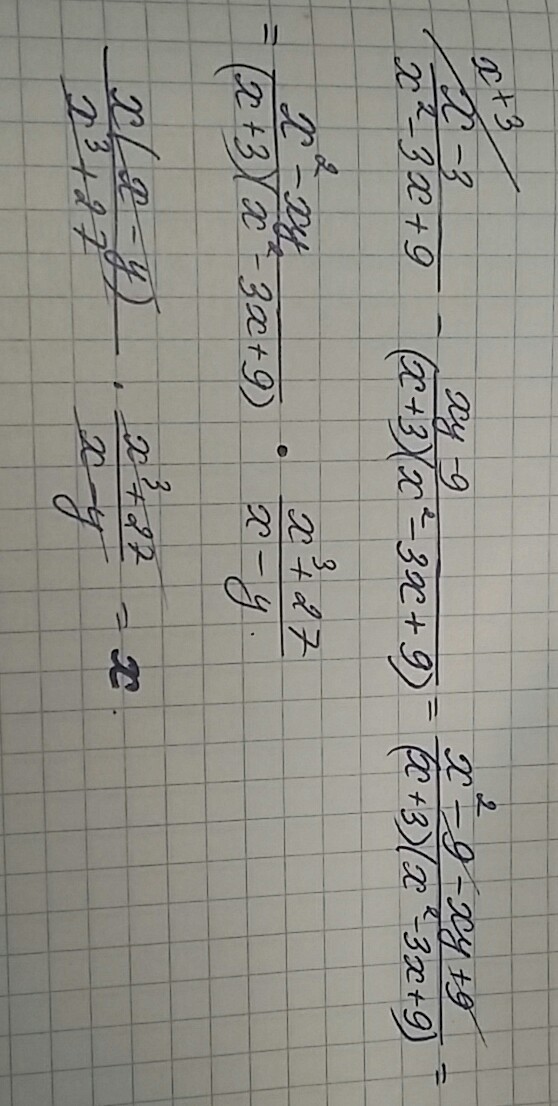 x+3 / (x-3)/(x²-3x+9) - (xy-9)/((x+3)(x²-3x+9)) = (x²-9-xy+9)/((x+3)(x²-3x+9)) =
= (x²-xy)/((x+3)(x²-3x+9)) · (x³+27)/(x-y).
(x(x-y))/(x³+27) · (x³+27)/(x-y) = x.